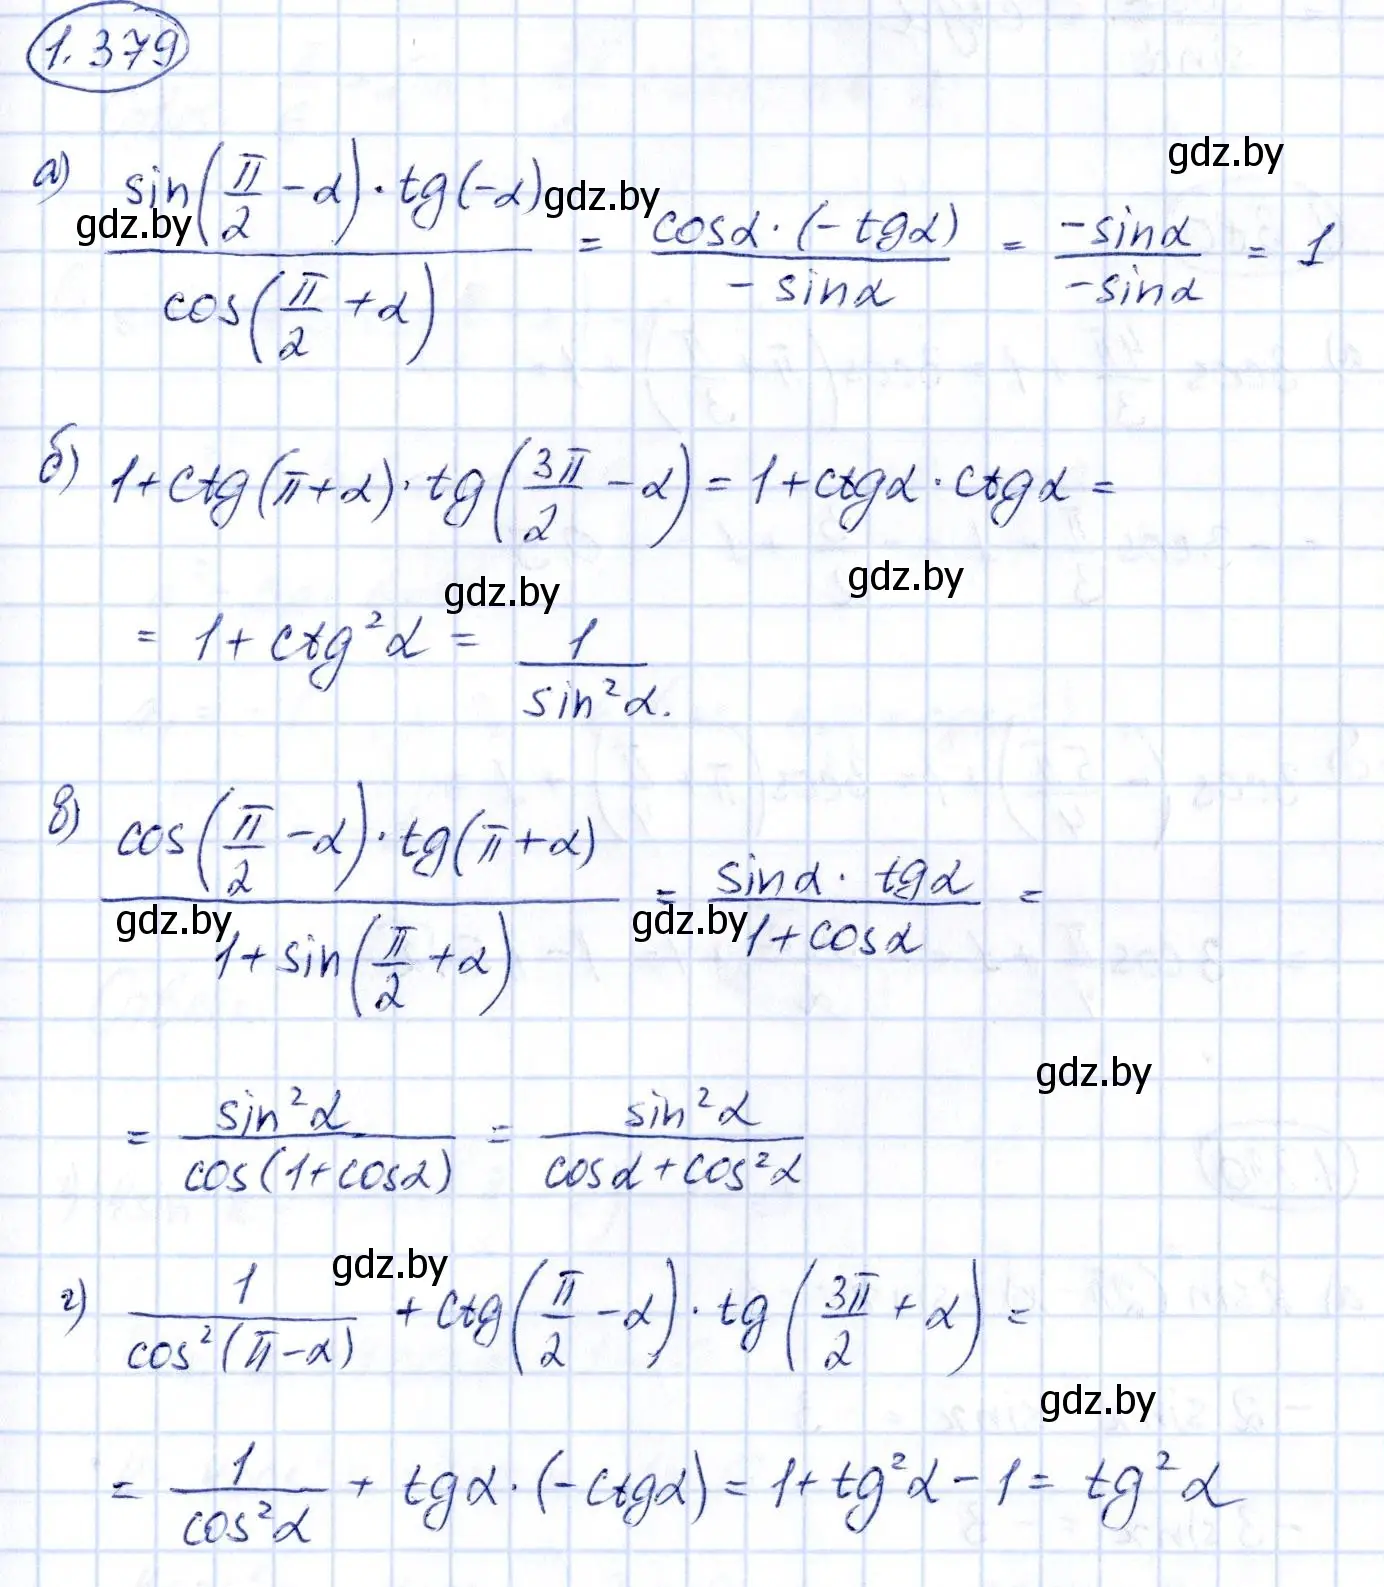 1.379
gdz.by
а) sin(π/2 − α) · tg(−α) / cos(π/2 + α) = cosα · (−tgα) / −sinα = −sinα / −sinα = 1
gdz.by gdz.by
б) 1 + ctg(π + α) · tg(3π/2 − α) = 1 + ctgα · ctgα =
gdz.by gdz.by
= 1 + ctg²α = 1 / sin²α.
в) cos(π/2 − α) · tg(π + α) / 1 + sin(π/2 + α) = sinα · tgα / 1 + cosα =
gdz.by gdz.by
gdz.by
= sin²α / cos(1 + cosα) = sin²α / cosα + cos²α
gdz.by
г) 1 / cos²(π − α) + ctg(π/2 − α) · tg(3π/2 + α) =
gdz.by
= 1 / cos²α + tgα · (−ctgα) = 1 + tg²α − 1 = tg²α